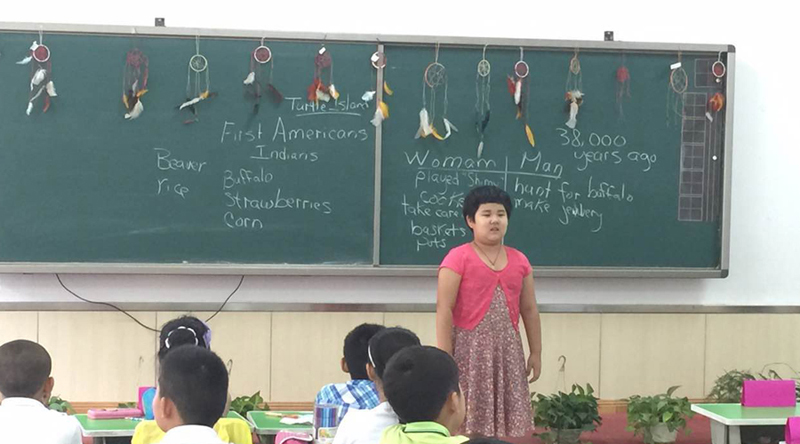 Turtle Islam
First Americans
Indians
Beaver
rice
Buffalo
Strawberries
Corn
38,000
years ago
Womam Man
played "Shinny"
cooked
take care
baskets
pots
hunt for buffalo
make jewbery